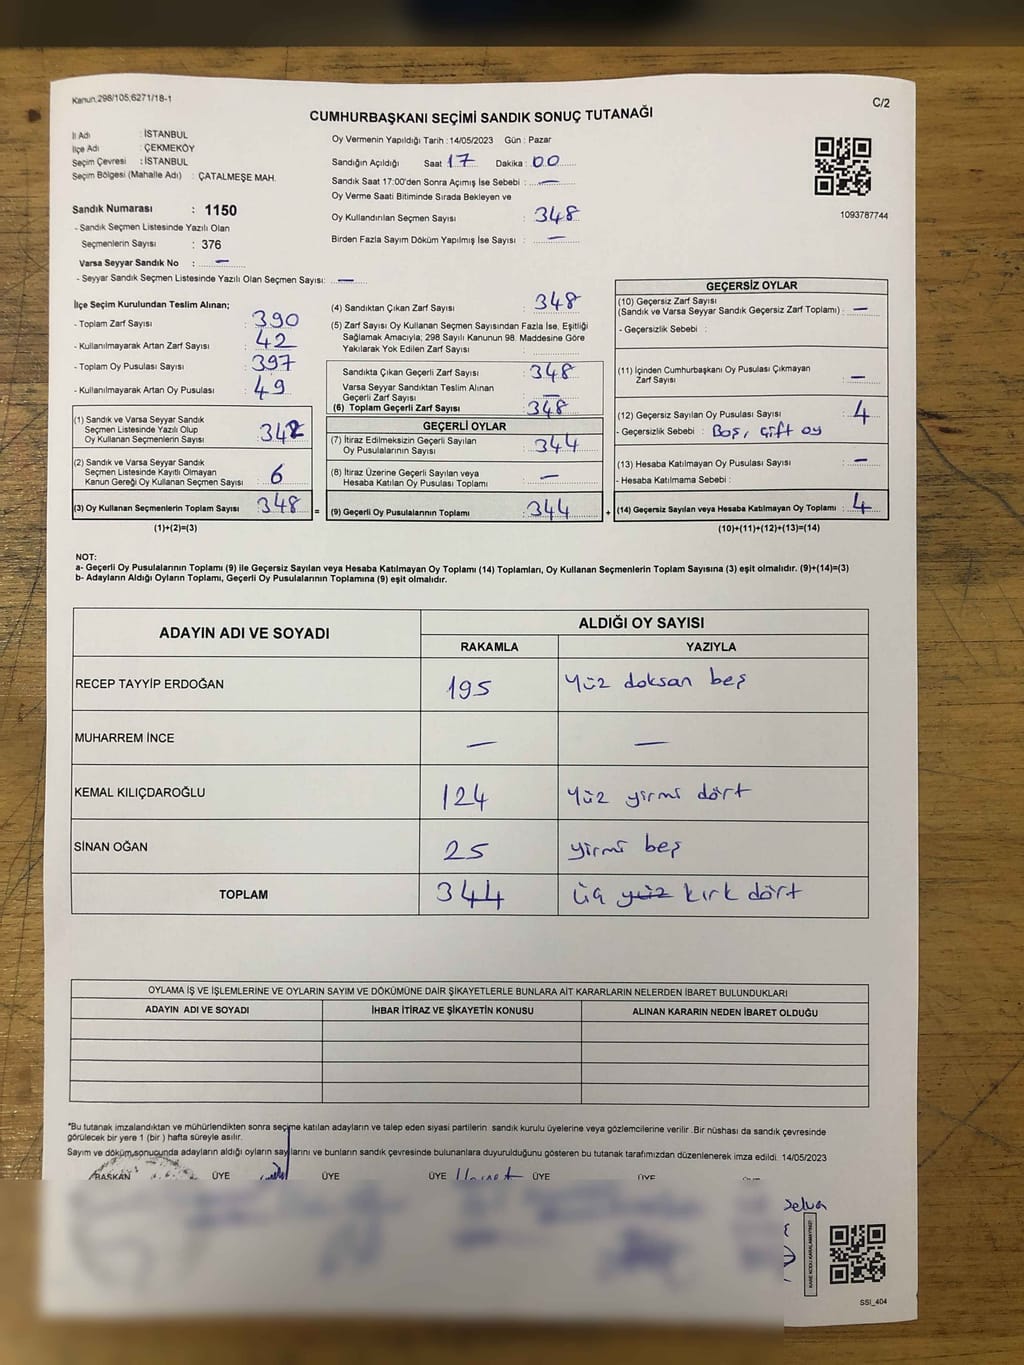 Kanun.298/105;6271/18-1
C/2
CUMHURBAŞKANI SEÇİMİ SANDIK SONUÇ TUTANAĞI
İl Adı : İSTANBUL
İlçe Adı : ÇEKMEKÖY
Seçim Çevresi : İSTANBUL
Seçim Bölgesi (Mahalle Adı) : ÇATALMEŞE MAH.
Sandık Numarası : 1150
- Sandık Seçmen Listesinde Yazılı Olan
Seçmenlerin Sayısı : 376
Varsa Seyyar Sandık No : —
- Seyyar Sandık Seçmen Listesinde Yazılı Olan Seçmen Sayısı: —
Oy Vermenin Yapıldığı Tarih : 14/05/2023 Gün : Pazar
Sandığın Açıldığı Saat 17 Dakika : 00
Sandık Saat 17:00'den Sonra Açımış İse Sebebi : —
Oy Verme Saati Bitiminde Sırada Bekleyen ve
Oy Kullandırılan Seçmen Sayısı : 348
Birden Fazla Sayım Döküm Yapılmış İse Sayısı : —
1093787744
İlçe Seçim Kurulundan Teslim Alınan;
- Toplam Zarf Sayısı : 390
- Kullanılmayarak Artan Zarf Sayısı : 42
- Toplam Oy Pusulası Sayısı : 397
- Kullanılmayarak Artan Oy Pusulası : 49
(1) Sandık ve Varsa Seyyar Sandık
Seçmen Listesinde Yazılı Olup
Oy Kullanan Seçmenlerin Sayısı : 342
(2) Sandık ve Varsa Seyyar Sandık
Seçmen Listesinde Kayıtlı Olmayan
Kanun Gereği Oy Kullanan Seçmen Sayısı : 6
(3) Oy Kullanan Seçmenlerin Toplam Sayısı : 348
(1)+(2)=(3)
(4) Sandıktan Çıkan Zarf Sayısı : 348
(5) Zarf Sayısı Oy Kullanan Seçmen Sayısından Fazla İse, Eşitliği
Sağlamak Amacıyla; 298 Sayılı Kanunun 98. Maddesine Göre
Yakılarak Yok Edilen Zarf Sayısı :
Sandıkta Çıkan Geçerli Zarf Sayısı : 348
Varsa Seyyar Sandıktan Teslim Alınan
Geçerli Zarf Sayısı : —
(6) Toplam Geçerli Zarf Sayısı : 348
GEÇERLİ OYLAR
(7) İtiraz Edilmeksizin Geçerli Sayılan
Oy Pusulasının Sayısı : 344
(8) İtiraz Üzerine Geçerli Sayılan veya
Hesaba Katılan Oy Pusulası Toplamı : —
= (9) Geçerli Oy Pusulalarının Toplamı : 344
GEÇERSİZ OYLAR
(10) Geçersiz Zarf Sayısı
(Sandık ve Varsa Seyyar Sandık Geçersiz Zarf Toplamı) : —
- Geçersizlik Sebebi :
(11) İçinden Cumhurbaşkanı Oy Pusulası Çıkmayan
Zarf Sayısı : —
(12) Geçersiz Sayılan Oy Pusulası Sayısı : 4
- Geçersizlik Sebebi : Boş, çift oy
(13) Hesaba Katılmayan Oy Pusulası Sayısı : —
- Hesaba Katılmama Sebebi :
+ (14) Geçersiz Sayılan veya Hesaba Katılmayan Oy Toplamı : 4
(10)+(11)+(12)+(13)=(14)
NOT:
a- Geçerli Oy Pusulalarının Toplamı (9) ile Geçersiz Sayılan veya Hesaba Katılmayan Oy Toplamı (14) Toplamları, Oy Kullanan Seçmenlerin Toplam Sayısına (3) eşit olmalıdır. (9)+(14)=(3)
b- Adayların Aldığı Oyların Toplamı, Geçerli Oy Pusulalarının Toplamına (9) eşit olmalıdır.
ADAYIN ADI VE SOYADI
ALDIĞI OY SAYISI
RAKAMLA YAZIYLA
RECEP TAYYİP ERDOĞAN 195 Yüz doksan beş
MUHARREM İNCE — —
KEMAL KILIÇDAROĞLU 124 Yüz yirmi dört
SİNAN OĞAN 25 yirmi beş
TOPLAM 344 üç yüz kırk dört
OYLAMA İŞ VE İŞLEMLERİNE VE OYLARIN SAYIM VE DÖKÜMÜNE DAİR ŞİKAYETLERLE BUNLARA AİT KARARLARIN NELERDEN İBARET BULUNDUKLARI
ADAYIN ADI VE SOYADI İHBAR İTİRAZ VE ŞİKAYETİN KONUSU ALINAN KARARIN NEDEN İBARET OLDUĞU
*Bu tutanak imzalandıktan ve mühürlendikten sonra seçime katılan adayların ve talep eden siyasi partilerin sandık kurulu üyelerine veya gözlemcilerine verilir. Bir nüshası da sandık çevresinde
görülecek bir yere 1 (bir) hafta süreyle asılır.
Sayım ve döküm sonucunda adayların aldığı oyların sayılarını ve bunların sandık çevresinde bulunanlara duyurulduğunu gösteren bu tutanak tarafımızdan düzenlenerek imza edildi. 14/05/2023
BAŞKAN ÜYE ÜYE ÜYE ÜYE ÜYE
SSI_404